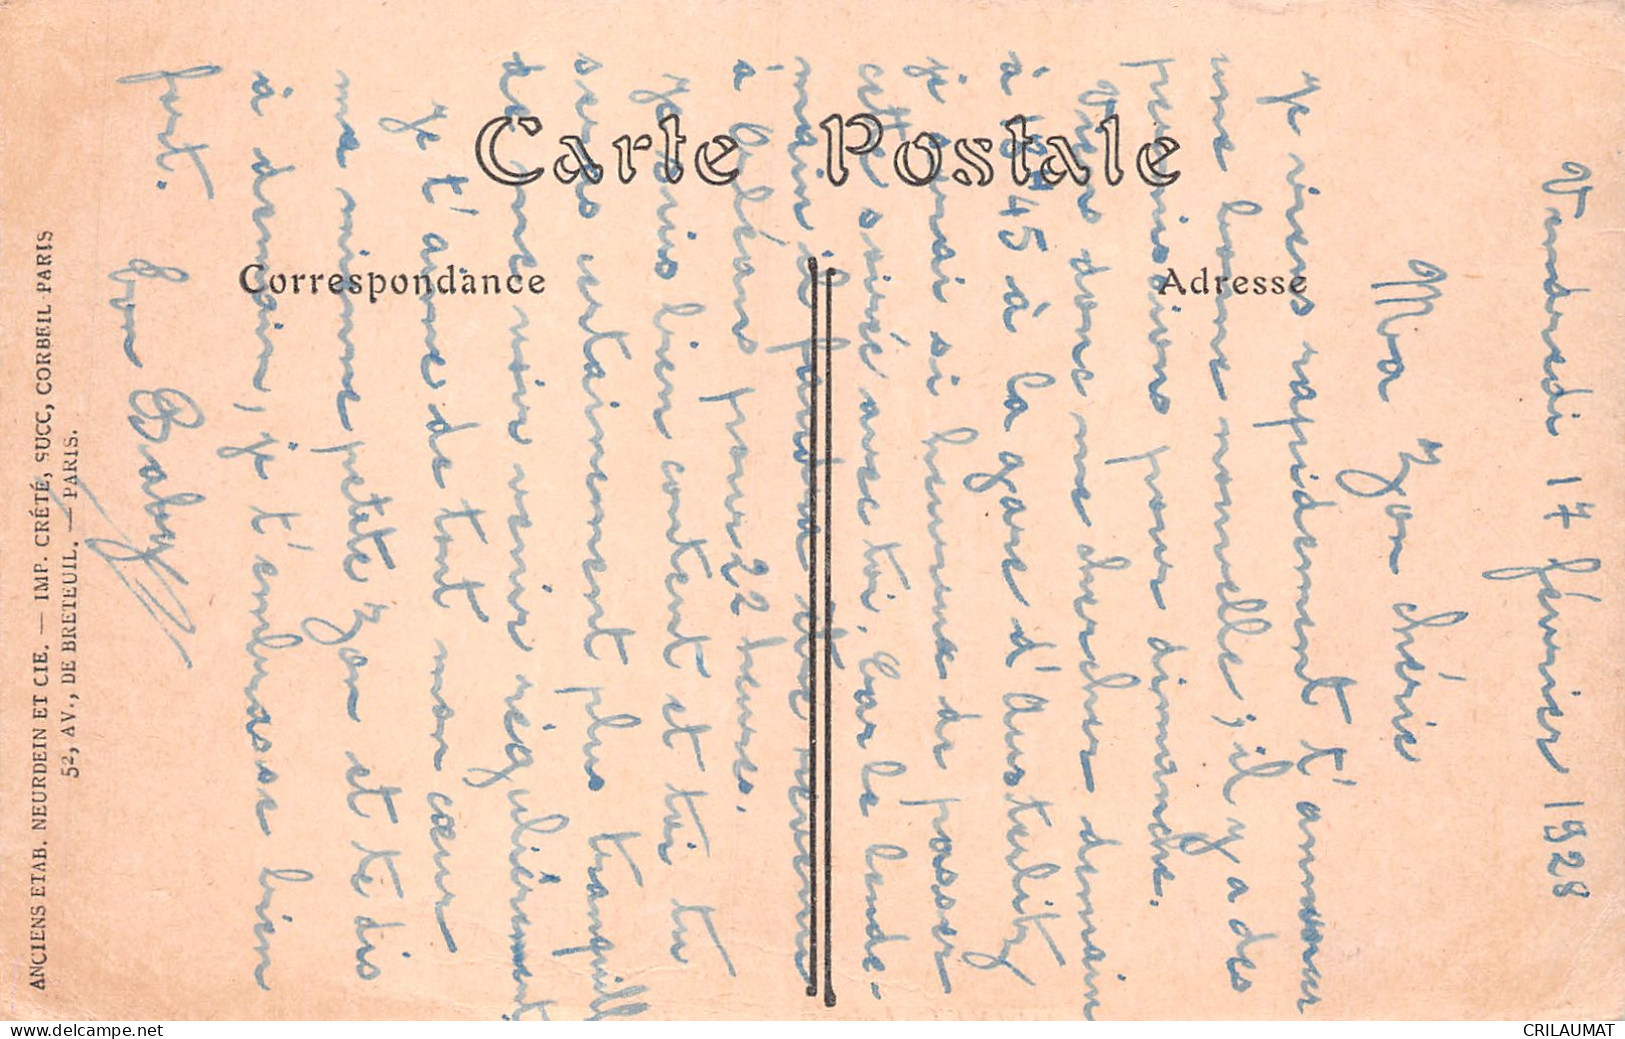 Carte Postale
Correspondance
Adresse
Vendredi 17 février 1928
Ma Zon chérie
Je viens rapidement t'annoncer
une bonne nouvelle; il y a des
permissions pour dimanche.
Viens donc me chercher demain
à 45 à la gare d'Austerlitz
je serai si heureux de passer
cette soirée avec toi. Car le lende-
main il faudra être revenu
à Orléans pour 22 heures.
Je suis bien content et toi tu
seras certainement plus tranquille
de me voir venir régulièrement
Je t'aime de tout mon cœur
ma mienne petite Zon et te dis
à demain, je t'embrasse bien
fort. Ton Baby
ANCIENS ETAB. NEURDEIN ET CIE. — IMP. CRÉTÉ, SUCC, CORBEIL-PARIS
52, AV., DE BRETEUIL. — PARIS.
www.delcampe.net
CRILAUMAT